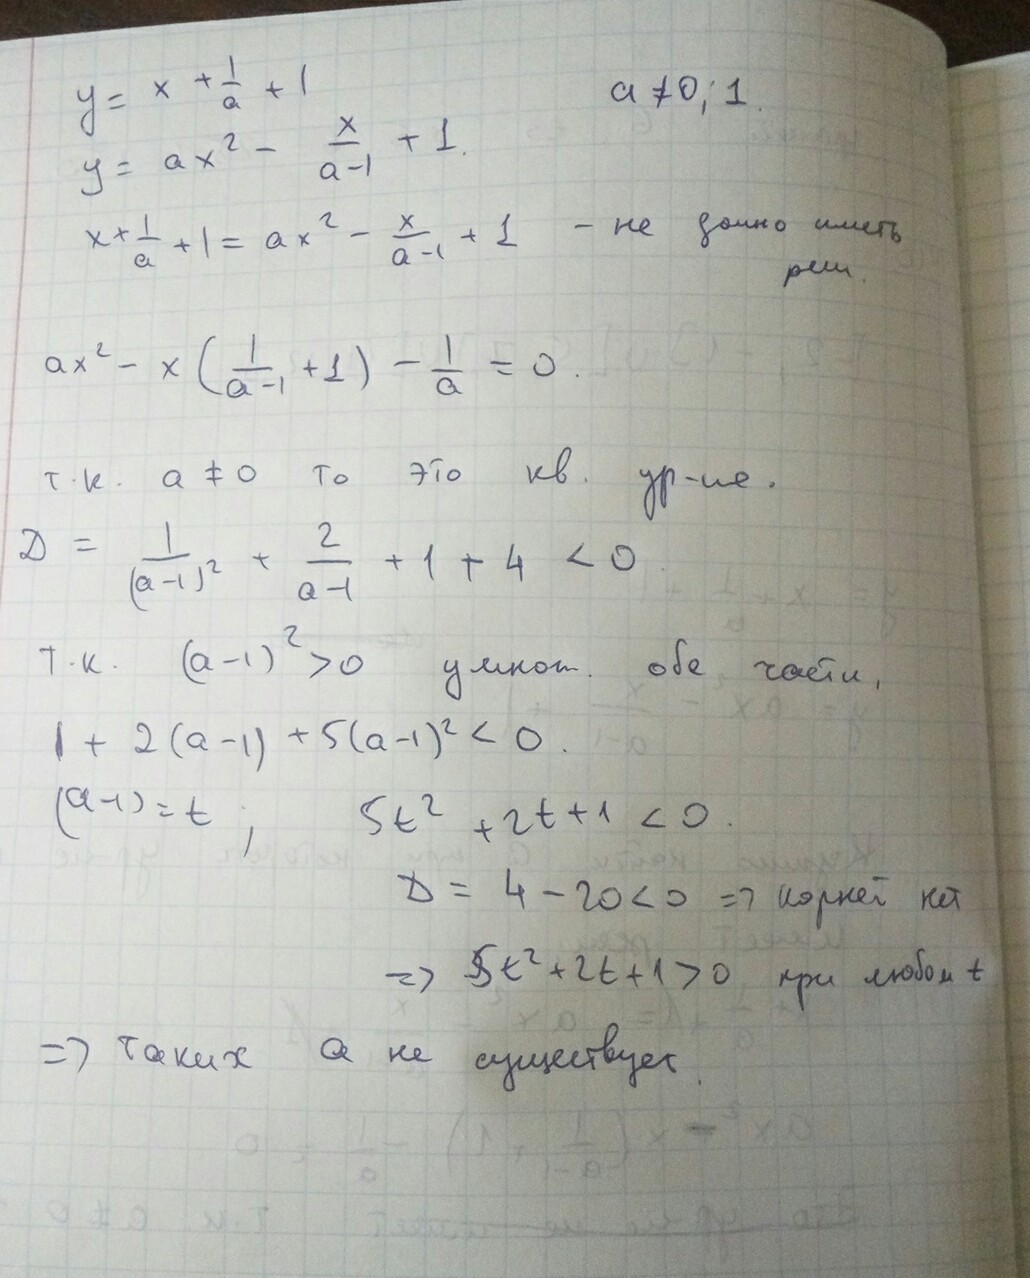 y = x + 1/a + 1        a ≠ 0; 1.
y = ax² - x/(a-1) + 1.
x + 1/a + 1 = ax² - x/(a-1) + 1 - не должно иметь
реш.
ax² - x (1/(a-1) + 1) - 1/a = 0.
т.к. a ≠ 0 то это кв. ур-ие.
D = 1/(a-1)² + 2/(a-1) + 1 + 4 < 0.
т.к. (a-1)² > 0 умнож. обе части,
1 + 2(a-1) + 5(a-1)² < 0.
(a-1) = t ;     5t² + 2t + 1 < 0.
D = 4 - 20 < 0 => корней нет
=> 5t² + 2t + 1 > 0 при любом t
=> таких a не существует.